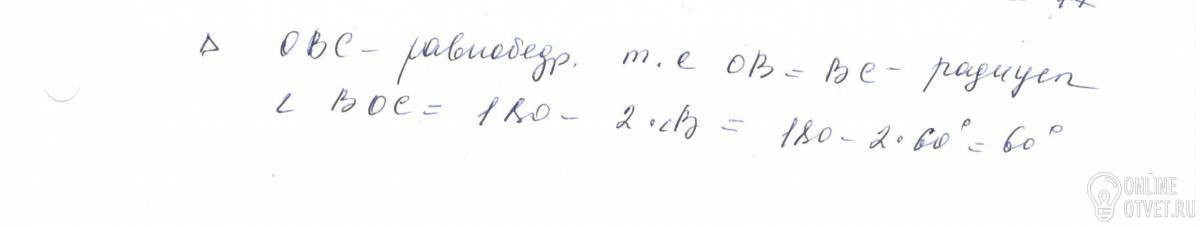 Δ OBC - равнобедр. т.е OB = BC - радиусы
∠ BOC = 180 - 2·∠B = 180 - 2·60° = 60°
ONLINE
OTVET.RU